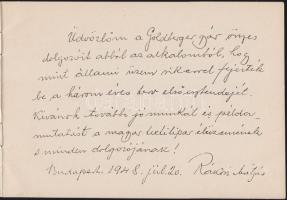 Üdvözlöm a Goldberger gyár összes
dolgozóit abból az alkalomból, hogy
mint állami üzem sikerrel fejezték
be a három éves terv első esztendejét.
Kívánok további jó munkát és példa-
mutatást a magyar textilipar élüzemének
s minden dolgozójának!
Budapest. 1948. júl. 20. Rákosi Mátyás